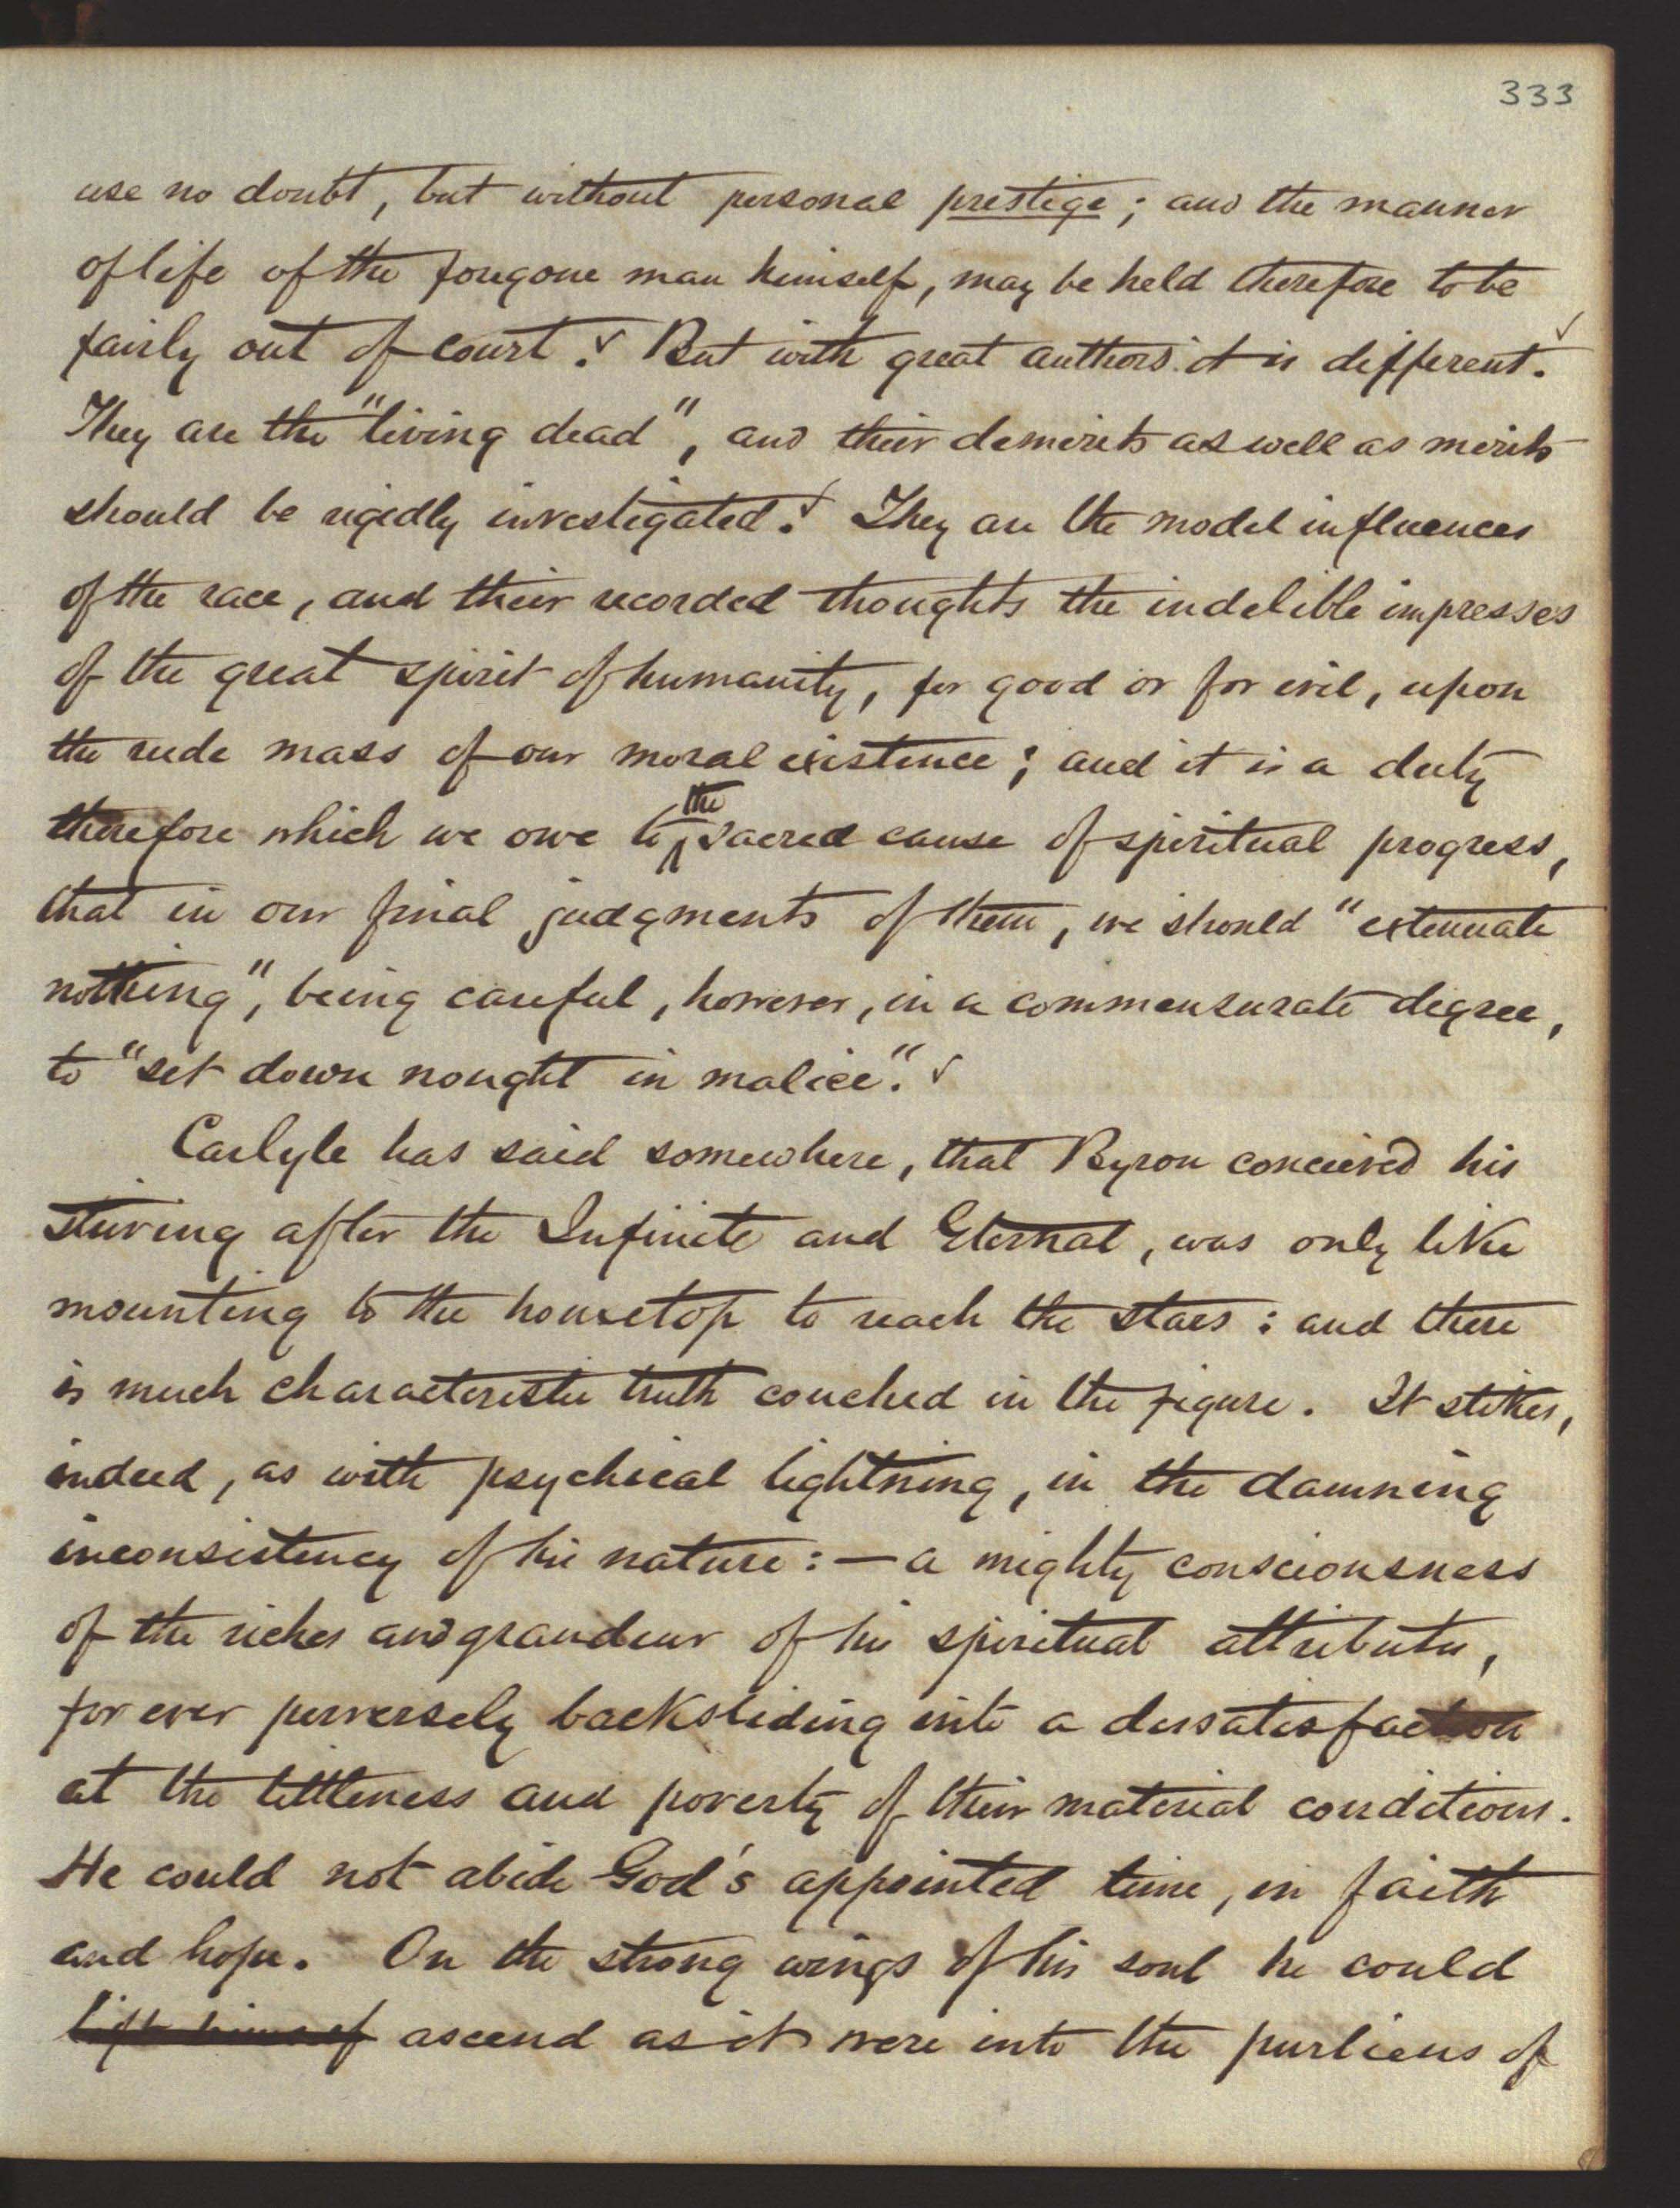 333
use no doubt, but without personal prestige; and the manner
of life of the foregone man himself, may be held therefore to be
fairly out of court. But with great authors it is different.
They are the "living dead", and their demerits as well as merits
should be rigidly investigated. They are the model influences
of the race, and their recorded thoughts the indelible impresses
of the great spirit of humanity, for good or for evil, upon
the rude mass of our moral existence; and it is a duty
therefore which we owe to the sacred cause of spiritual progress,
that in our final judgments of them, we should "extenuate
nothing", being careful, however, in a commensurate degree,
to "set down nought in malice".
Carlyle has said somewhere, that Byron conceived his
striving after the Infinite and Eternal, was only like
mounting to the housetop to reach the stars: and there
is much characteristic truth couched in the figure. It strikes,
indeed, as with psychical lightning, in the damning
inconsistency of his nature:— a mighty consciousness
of the riches and grandeur of his spiritual attributes,
for ever perversely backsliding into a dissatisfaction
at the littleness and poverty of their material conditions.
He could not abide God's appointed time, in faith
and hope. On the strong wings of his soul he could
lift himself ascend as it were into the purlieus of